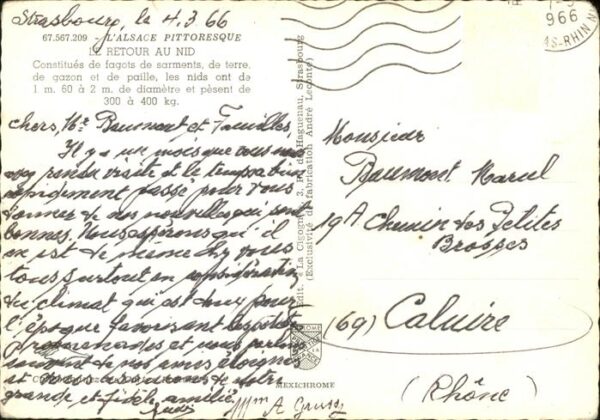 Strasbourg, le 4.3.66
67.567.209 - L'ALSACE PITTORESQUE
LE RETOUR AU NID
Constitués de fagots de sarments, de terre,
de gazon et de paille, les nids ont de
1 m. 60 à 2 m. de diamètre et pèsent de
300 à 400 kg.
Chers, Mr Baumont et Familles,
Il y a un mois que vous
rendu visite et le temps a bien
rapidement passé pour vous
donner de nos nouvelles qui sont
bonnes. Nous espérons qu'il
en est de même chez vous
tous surtout en considération
du climat qui est doux pour
l'époque favorisant les petites
promenades et nous
de nos amis éloignés
et nous assurons de notre
grande et fidèle amitié.
Mme A
Edit. "La Cigogne", 3, R. de Haguenau, Strasbourg
(Exclusivité de fabrication André Leconte)
MEXICHROME
966
AS-RHIN
Monsieur
Baumont Marcel
19 A Chemin des Petites
Brosses
(69) Caluire
(Rhône)